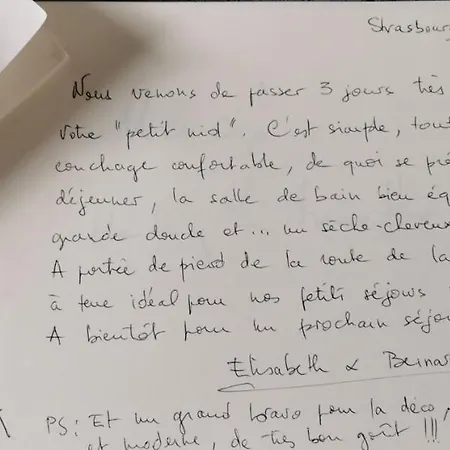 Strasbour
Nous venons de passer 3 jours très
votre "petit nid". C'est simple, tout
couchage confortable, de quoi se pré
déjeuner, la salle de bain bien éq
grande douche et... un sèche-cheveux
A portée de pied de la route de la
à tene idéal pour nos petits séjours
A bientôt pour un prochain séjou
Elisabeth & Bernar
PS: Et un grand bravo pour la déco,
et moderne, de très bon goût !!!